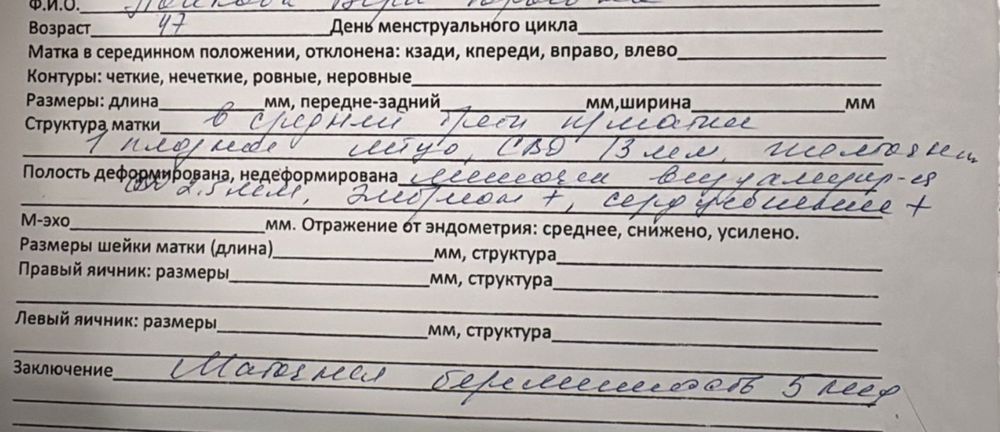 Ф.И.О.
Возраст 47 День менструального цикла
Матка в серединном положении, отклонена: кзади, кпереди, вправо, влево
Контуры: четкие, нечеткие, ровные, неровные
Размеры: длина мм, передне-задний мм,ширина мм
Структура матки в средней трети п/матки
1 плодное яйцо, СВД 13 мм, желточн
Полость деформирована, недеформирована мешочек визуализир-ся
2.5 мм, Эмбрион +, сердцебиение +
М-эхо мм. Отражение от эндометрия: среднее, снижено, усилено.
Размеры шейки матки (длина) мм, структура
Правый яичник: размеры мм, структура
Левый яичник: размеры мм, структура
Заключение Маточная беременность 5 нед